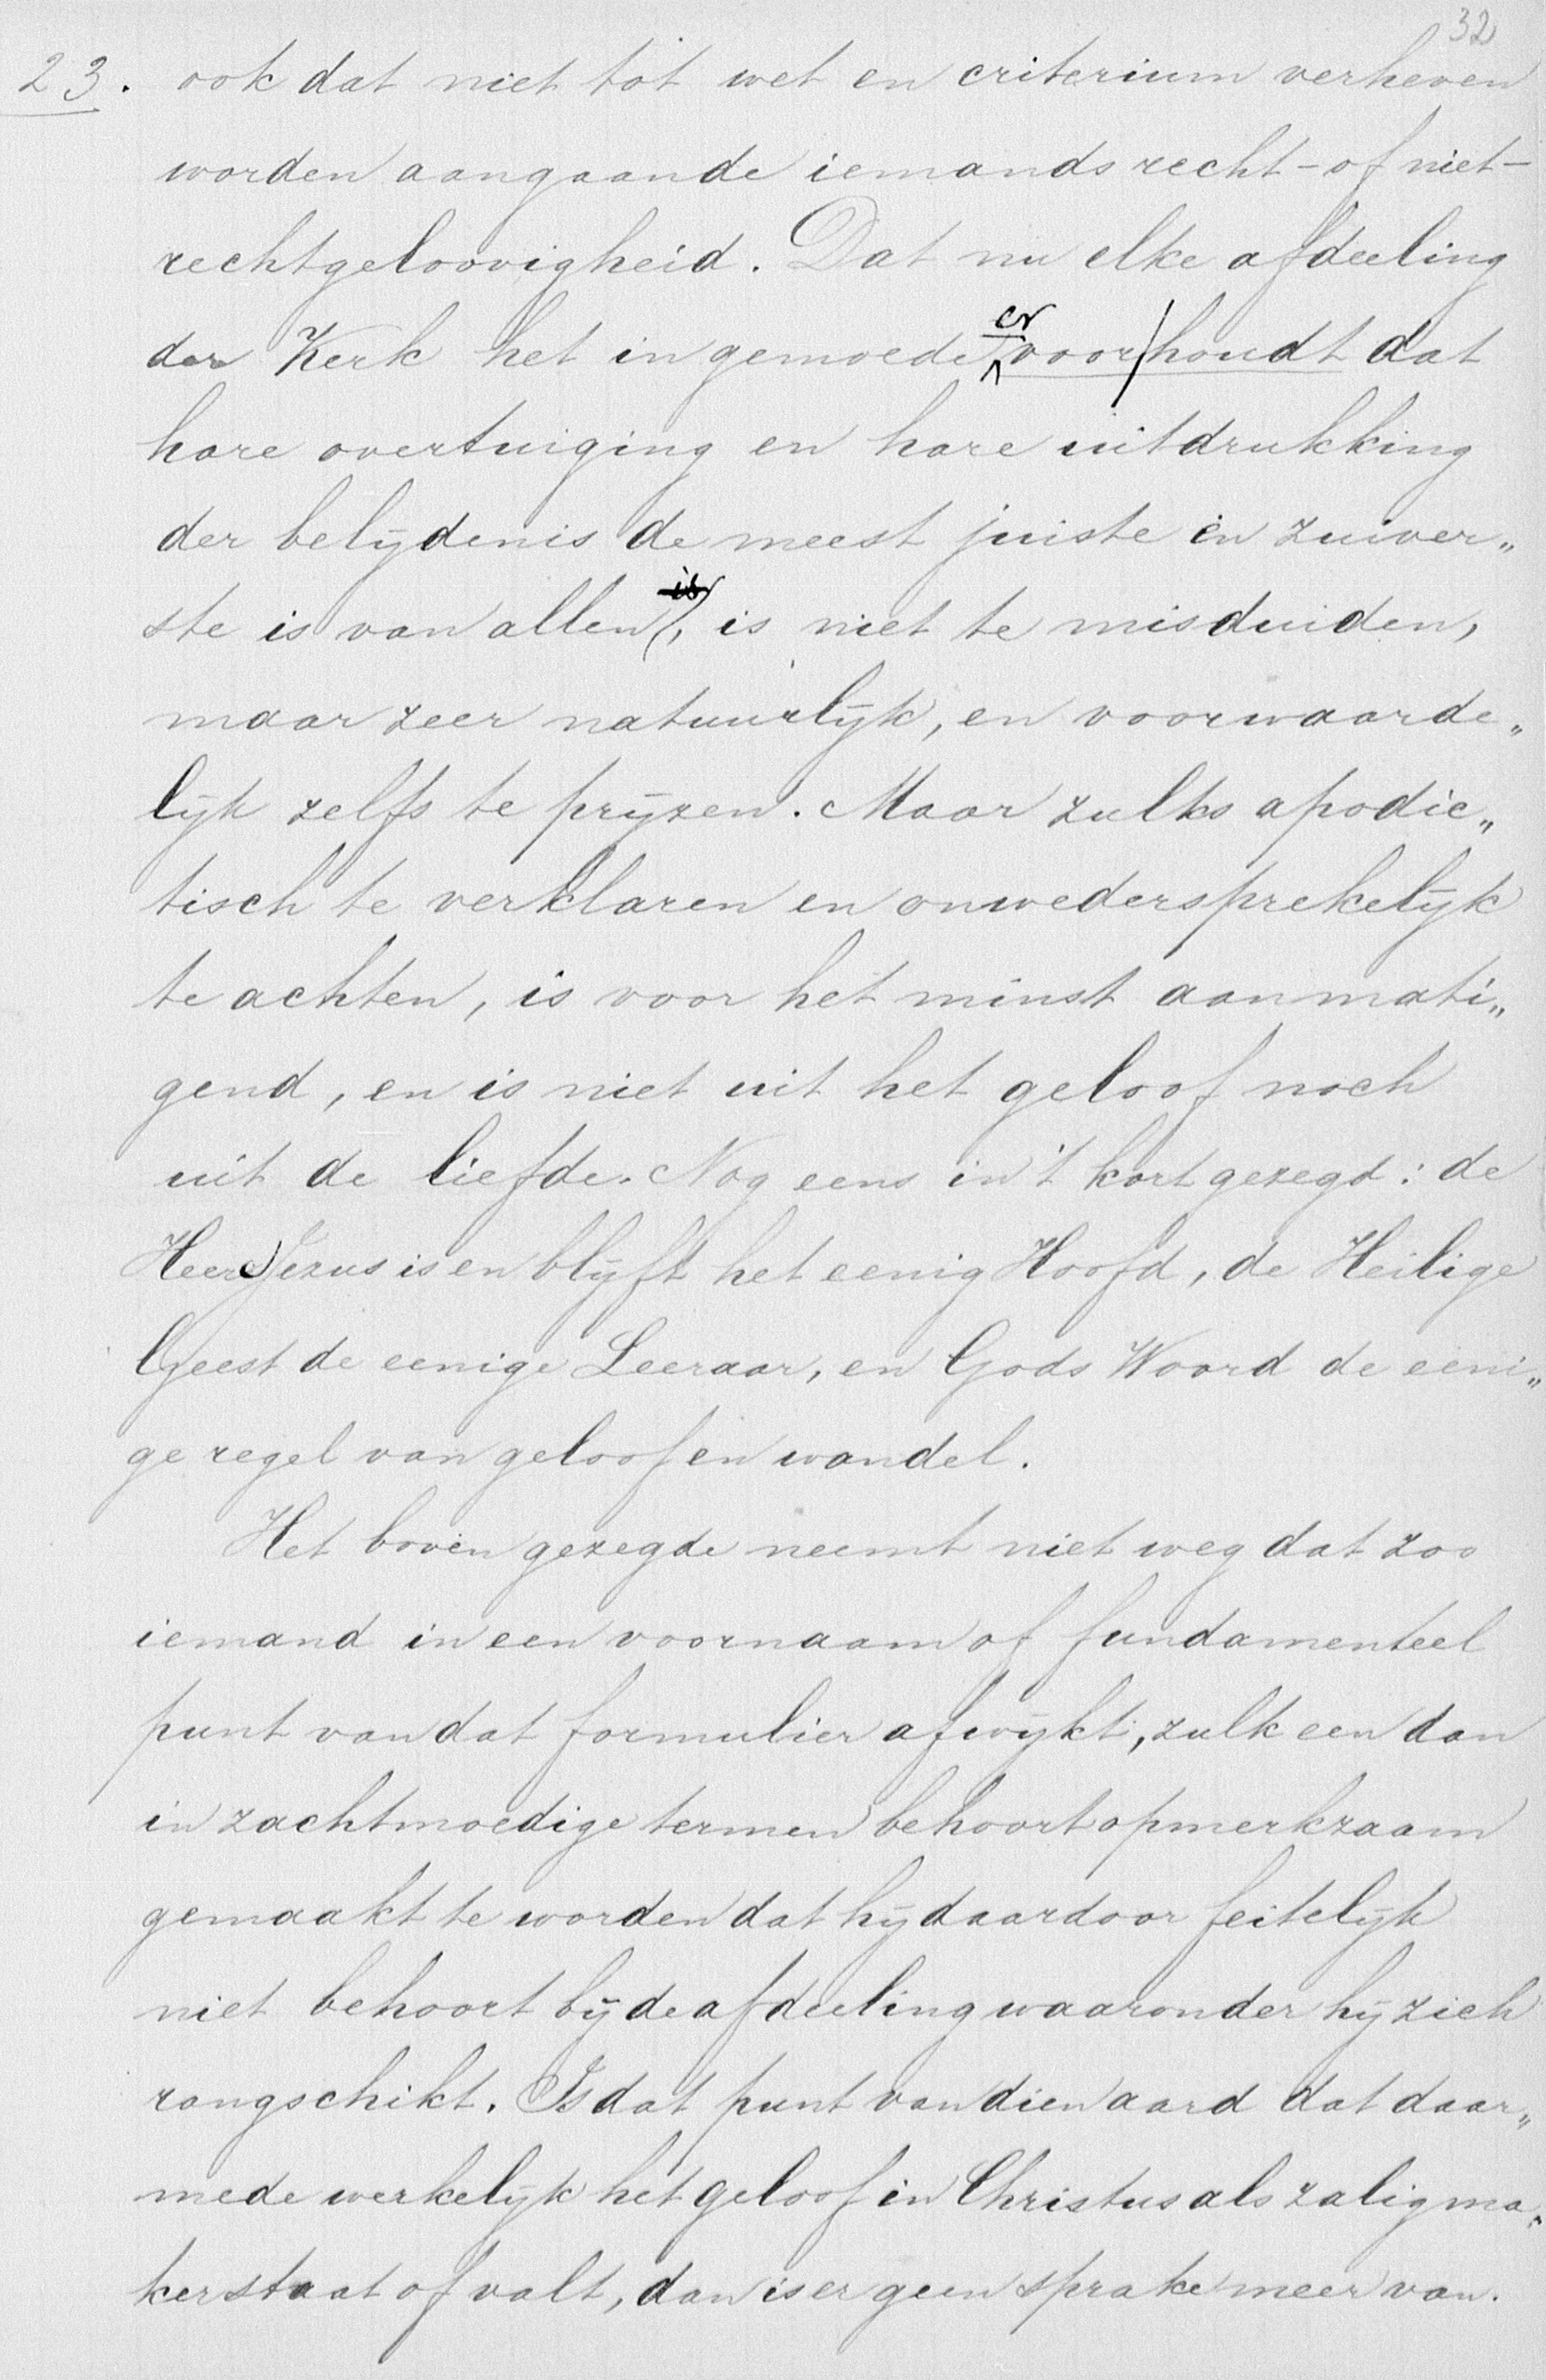 32
23. ook dat niet tot wet en criterium verheven
worden aangaande iemands recht- of niet-
rechtgeloovigheid. Dat nu elke afdeeling
der Kerk het in gemoede er voor/houdt dat
hare overtuiging en hare uitdrukking
der belijdenis de meest juiste en zuiver„
ste is van allen, is niet te misduiden,
maar zeer natuurlijk, en voorwaarde„
lijk zelfs te prijzen. Maar zulks apodic„
tisch te verklaren en onwedersprekelijk
te achten, is voor het minst aanmati„
gend, en is niet uit het geloof noch
uit de liefde. Nog eens in 't kort gezegd: de
Heere Jezus is en blijft het eenig Hoofd, de Heilige
Geest de eenige Leeraar, en Gods Woord de eeni„
ge regel van geloof en wandel.
Het boven gezegde neemt niet weg dat zoo
iemand in een voornaam of fundamenteel
punt van dat formulier afwijkt, zulk een dan
in zachtmoedige termen behoort opmerkzaam
gemaakt te worden dat hij daardoor feitelijk
niet behoort bij de afdeeling waaronder hij zich
rangschikt. Is dat punt van dien aard dat daar„
mede werkelijk het geloof in Christus als zaligma„
ker staat of valt, dan is er geen sprake meer van.